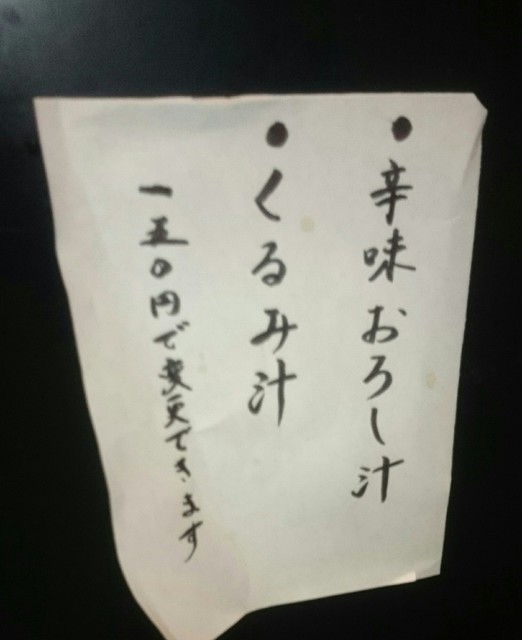 ●辛味おろし汁
●くるみ汁
一五〇円で変更できます